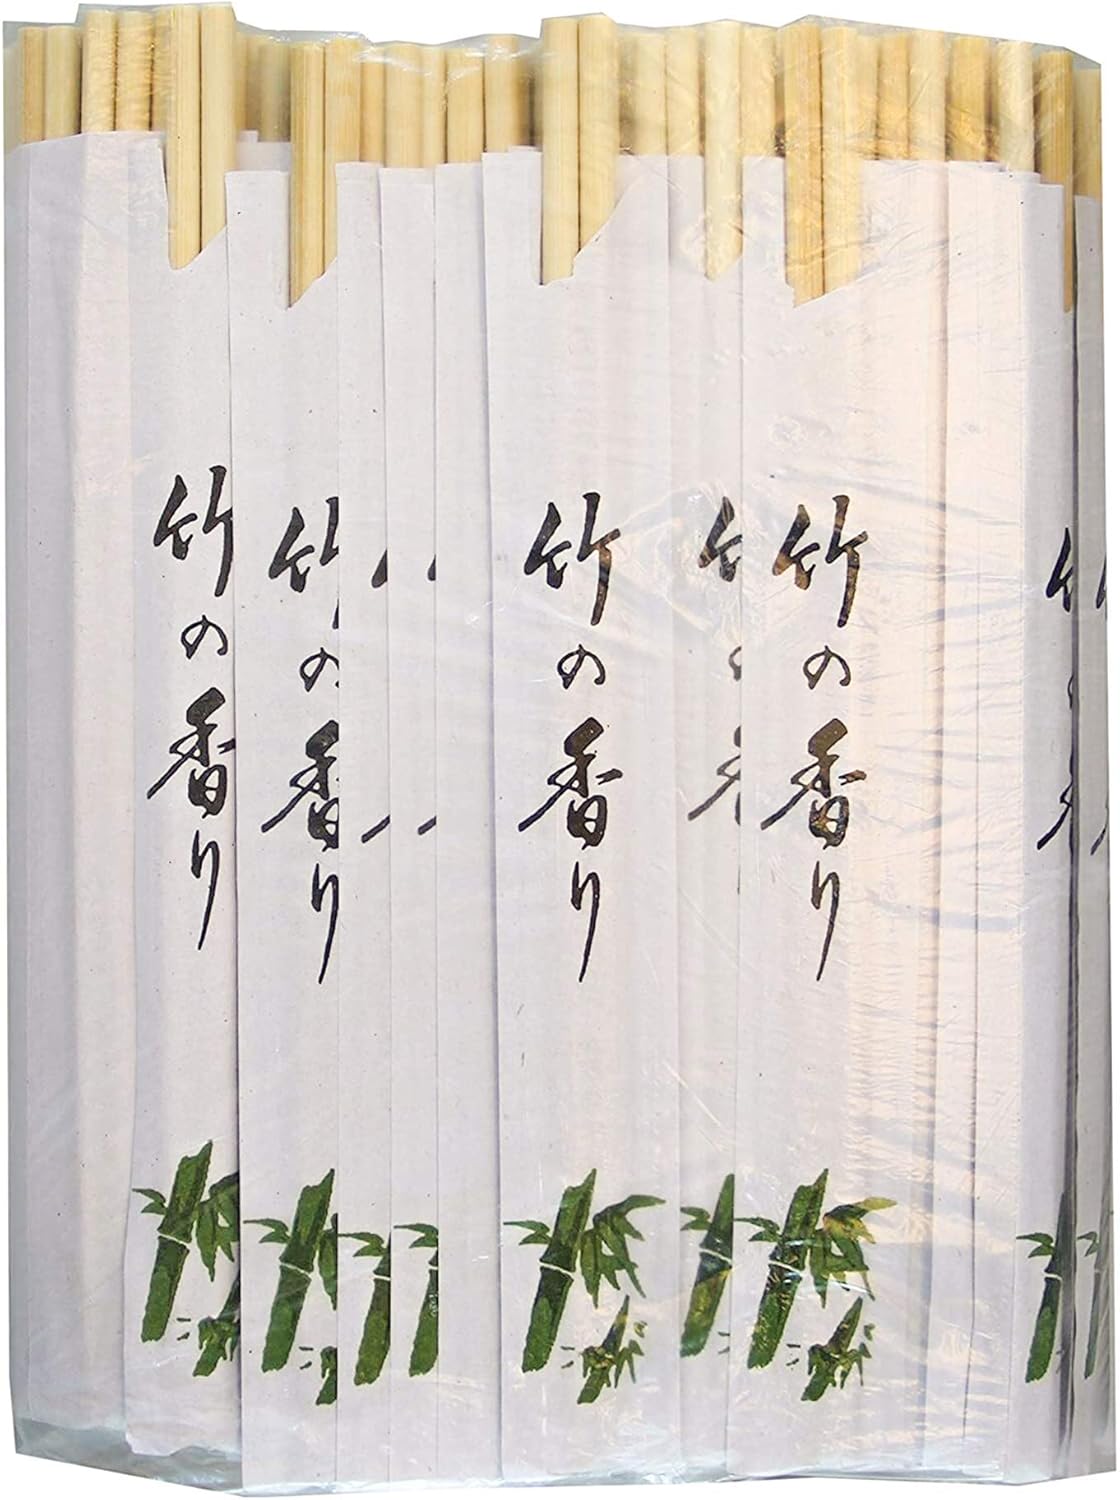 竹の香り
竹の香り
竹の香り
竹の香り